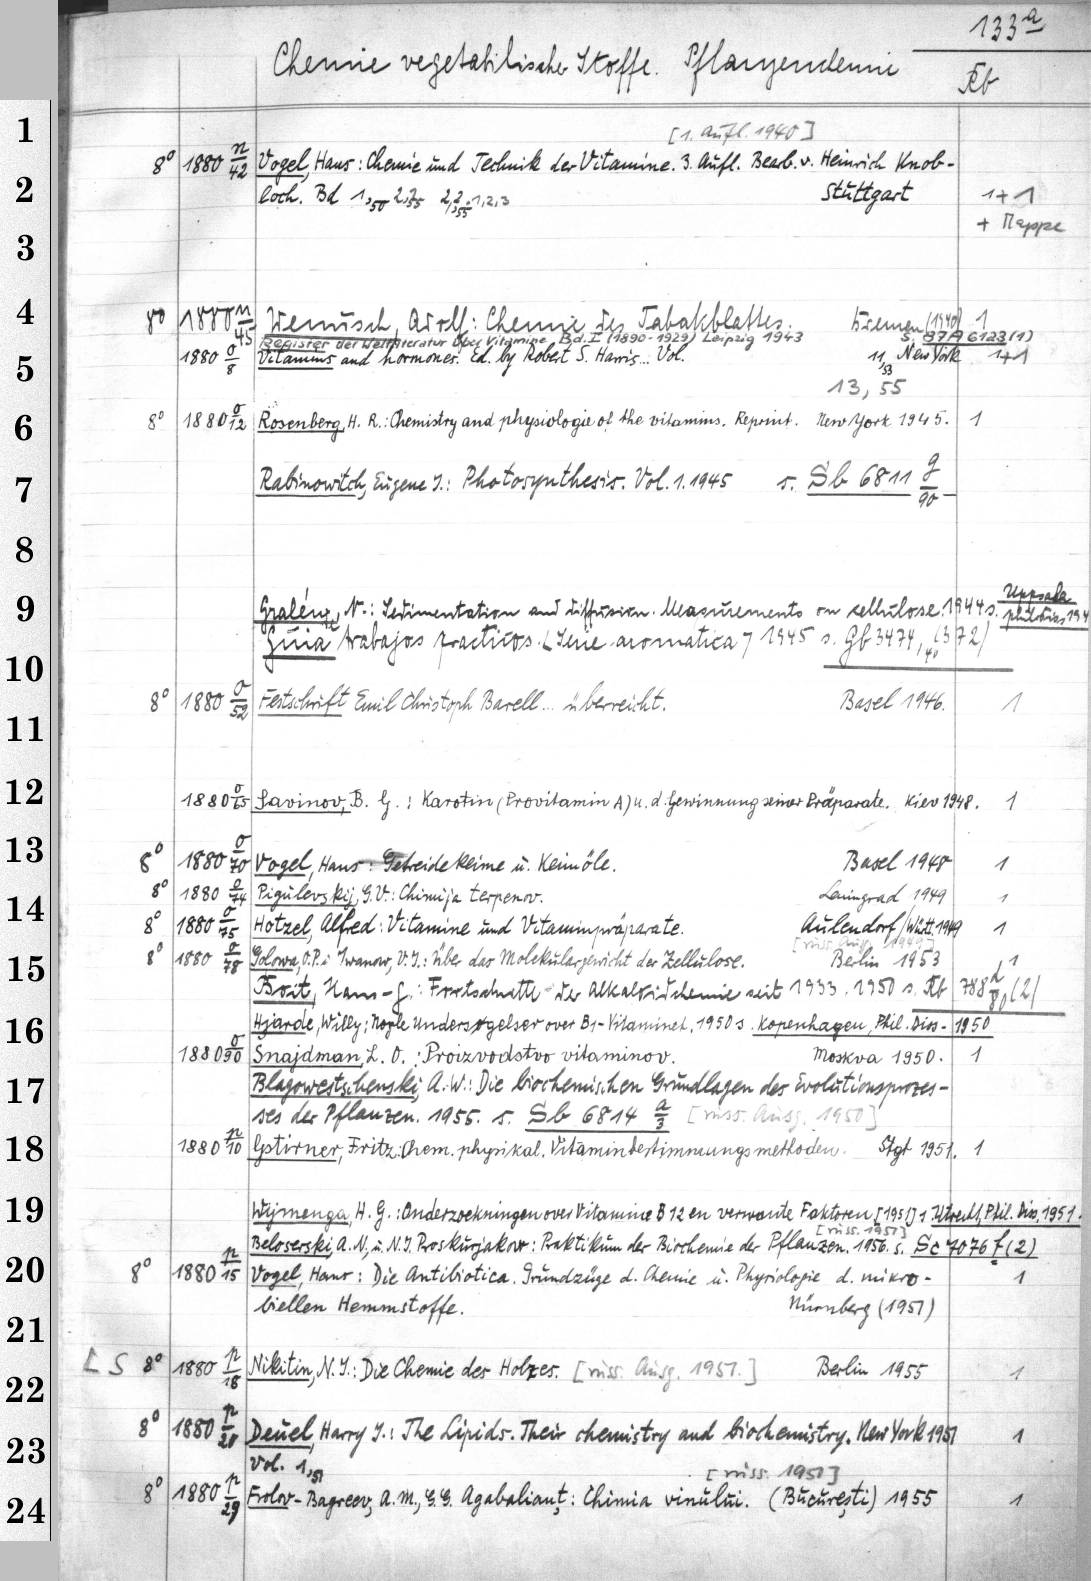 133a
Chemie vegetabilischer Stoffe. Pflanzenchemie
Kb
1
[1. Aufl. 1940]
8° 1880 n/42 Vogel, Hans: Chemie und Technik der Vitamine. 3. Aufl. Bearb. v. Heinrich Knob-
2 loch. Bd 1,50 2,1,55 2,2,55.1,2,3 Stuttgart 1+1
+ Mappe
3
4 8° 1880 n/45 Wenusch, Adolf: Chemie des Tabakblattes. Bremen (1940) 1
Register der Weltliteratur über Vitamine Bd. I (1890-1929) Leipzig 1943 s. 87A6123(1)
5 1880 o/8 Vitamins and hormones. Ed. by Robert S. Harris... Vol. 11,53 New York 1+1
13, 55
6 8° 1880 o/12 Rosenberg, H. R.: Chemistry and physiologie of the vitamins. Reprint. New York 1945. 1
7 Rabinowitch, Eugene I.: Photosynthesis. Vol. 1. 1945 s. Sb 6811 g/90
8
9 Gralén, N.: Sedimentation and diffusion. Measurements on cellulose. 1944 s. Uppsala phil. Diss 194
Guia trabajos practicos. (Serie aromatica) 1945 s. Gb 3474, 40 (372)
10
8° 1880 o/52 Festschrift Emil Christoph Barell... überreicht. Basel 1946. 1
11
12 1880 o/65 Savinov, B. G.: Karotin (Provitamin A) u. d. Gewinnung seiner Präparate. Kiev 1948. 1
13 8° 1880 o/70 Vogel, Hans: Getreidekeime u. Keimöle. Basel 1948 1
8° 1880 o/74 Pigulevskij, G. V.: Chimija terpenov. Leningrad 1949 1
14 8° 1880 o/75 Hotzel, Alfred: Vitamine und Vitaminpräparate. Aulendorf/Württ. 1949 1
[russ. Ausg. 1949]
15 8° 1880 o/78 Golowa, O. P. u. Iwanow, V. I.: Über das Molekulargewicht der Zellulose. Berlin 1953 1
Boit, Hans-G.: Fortschritte der Alkaloidchemie seit 1933. 1950 s. Kb 788 d/80 (2)
16 Hjarde, Willy: Nogle Undersøgelser over B1-Vitaminet. 1950 s. Kopenhagen, Phil. Diss-1950
1880 o/90 Šnajdman, L. O.: Proizvodstvo vitaminov. Moskva 1950. 1
17 Blagoweschtschenski, A. W.: Die biochemischen Grundlagen des Evolutionsprozes-
ses der Pflanzen. 1955. s. Sb 6814 a/3 [russ. Ausg. 1950]
18 1880 p/10 Gstirner, Fritz: Chem. physikal. Vitaminbestimmungsmethoden. Stgt 1951. 1
19 Wijmenga, H. G.: Onderzoekningen over Vitamine B 12 en verwante Faktoren [1951] s Utrecht, Phil. Diss. 1951.
[russ. 1951]
Beloserski, A. N. u. N. I. Proskurjakow: Praktikum der Biochemie der Pflanzen. 1956. s. Sc 7076 f (2)
20 8° 1880 p/15 Vogel, Hans: Die Antibiotica. Grundzüge d. Chemie u. Physiologie d. mikro- 1
biellen Hemmstoffe. Nürnberg (1951)
21
22 LS 8° 1880 p/18 Nikitin, N. I.: Die Chemie des Holzes. [russ. Ausg. 1951.] Berlin 1955 1
8° 1880 p/20 Deuel, Harry J.: The Lipids. Their chemistry and biochemistry. New York 1951 1
23 Vol. 1,51
[russ. 1951]
24 8° 1880 p/29 Frolov-Bagreev, A. M., G. G. Agabalianț: Chimia vinului. (București) 1955 1